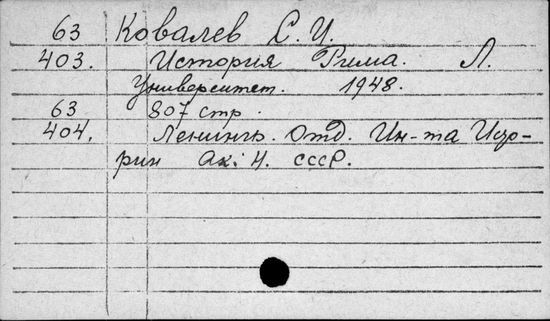 63 Ковалев С. И.
403. История Рима. Л.
Университет. 1948.
63 807 стр.
404. Ленингр. Отд. Ин-та Исто-
рии Ак. Н. СССР.